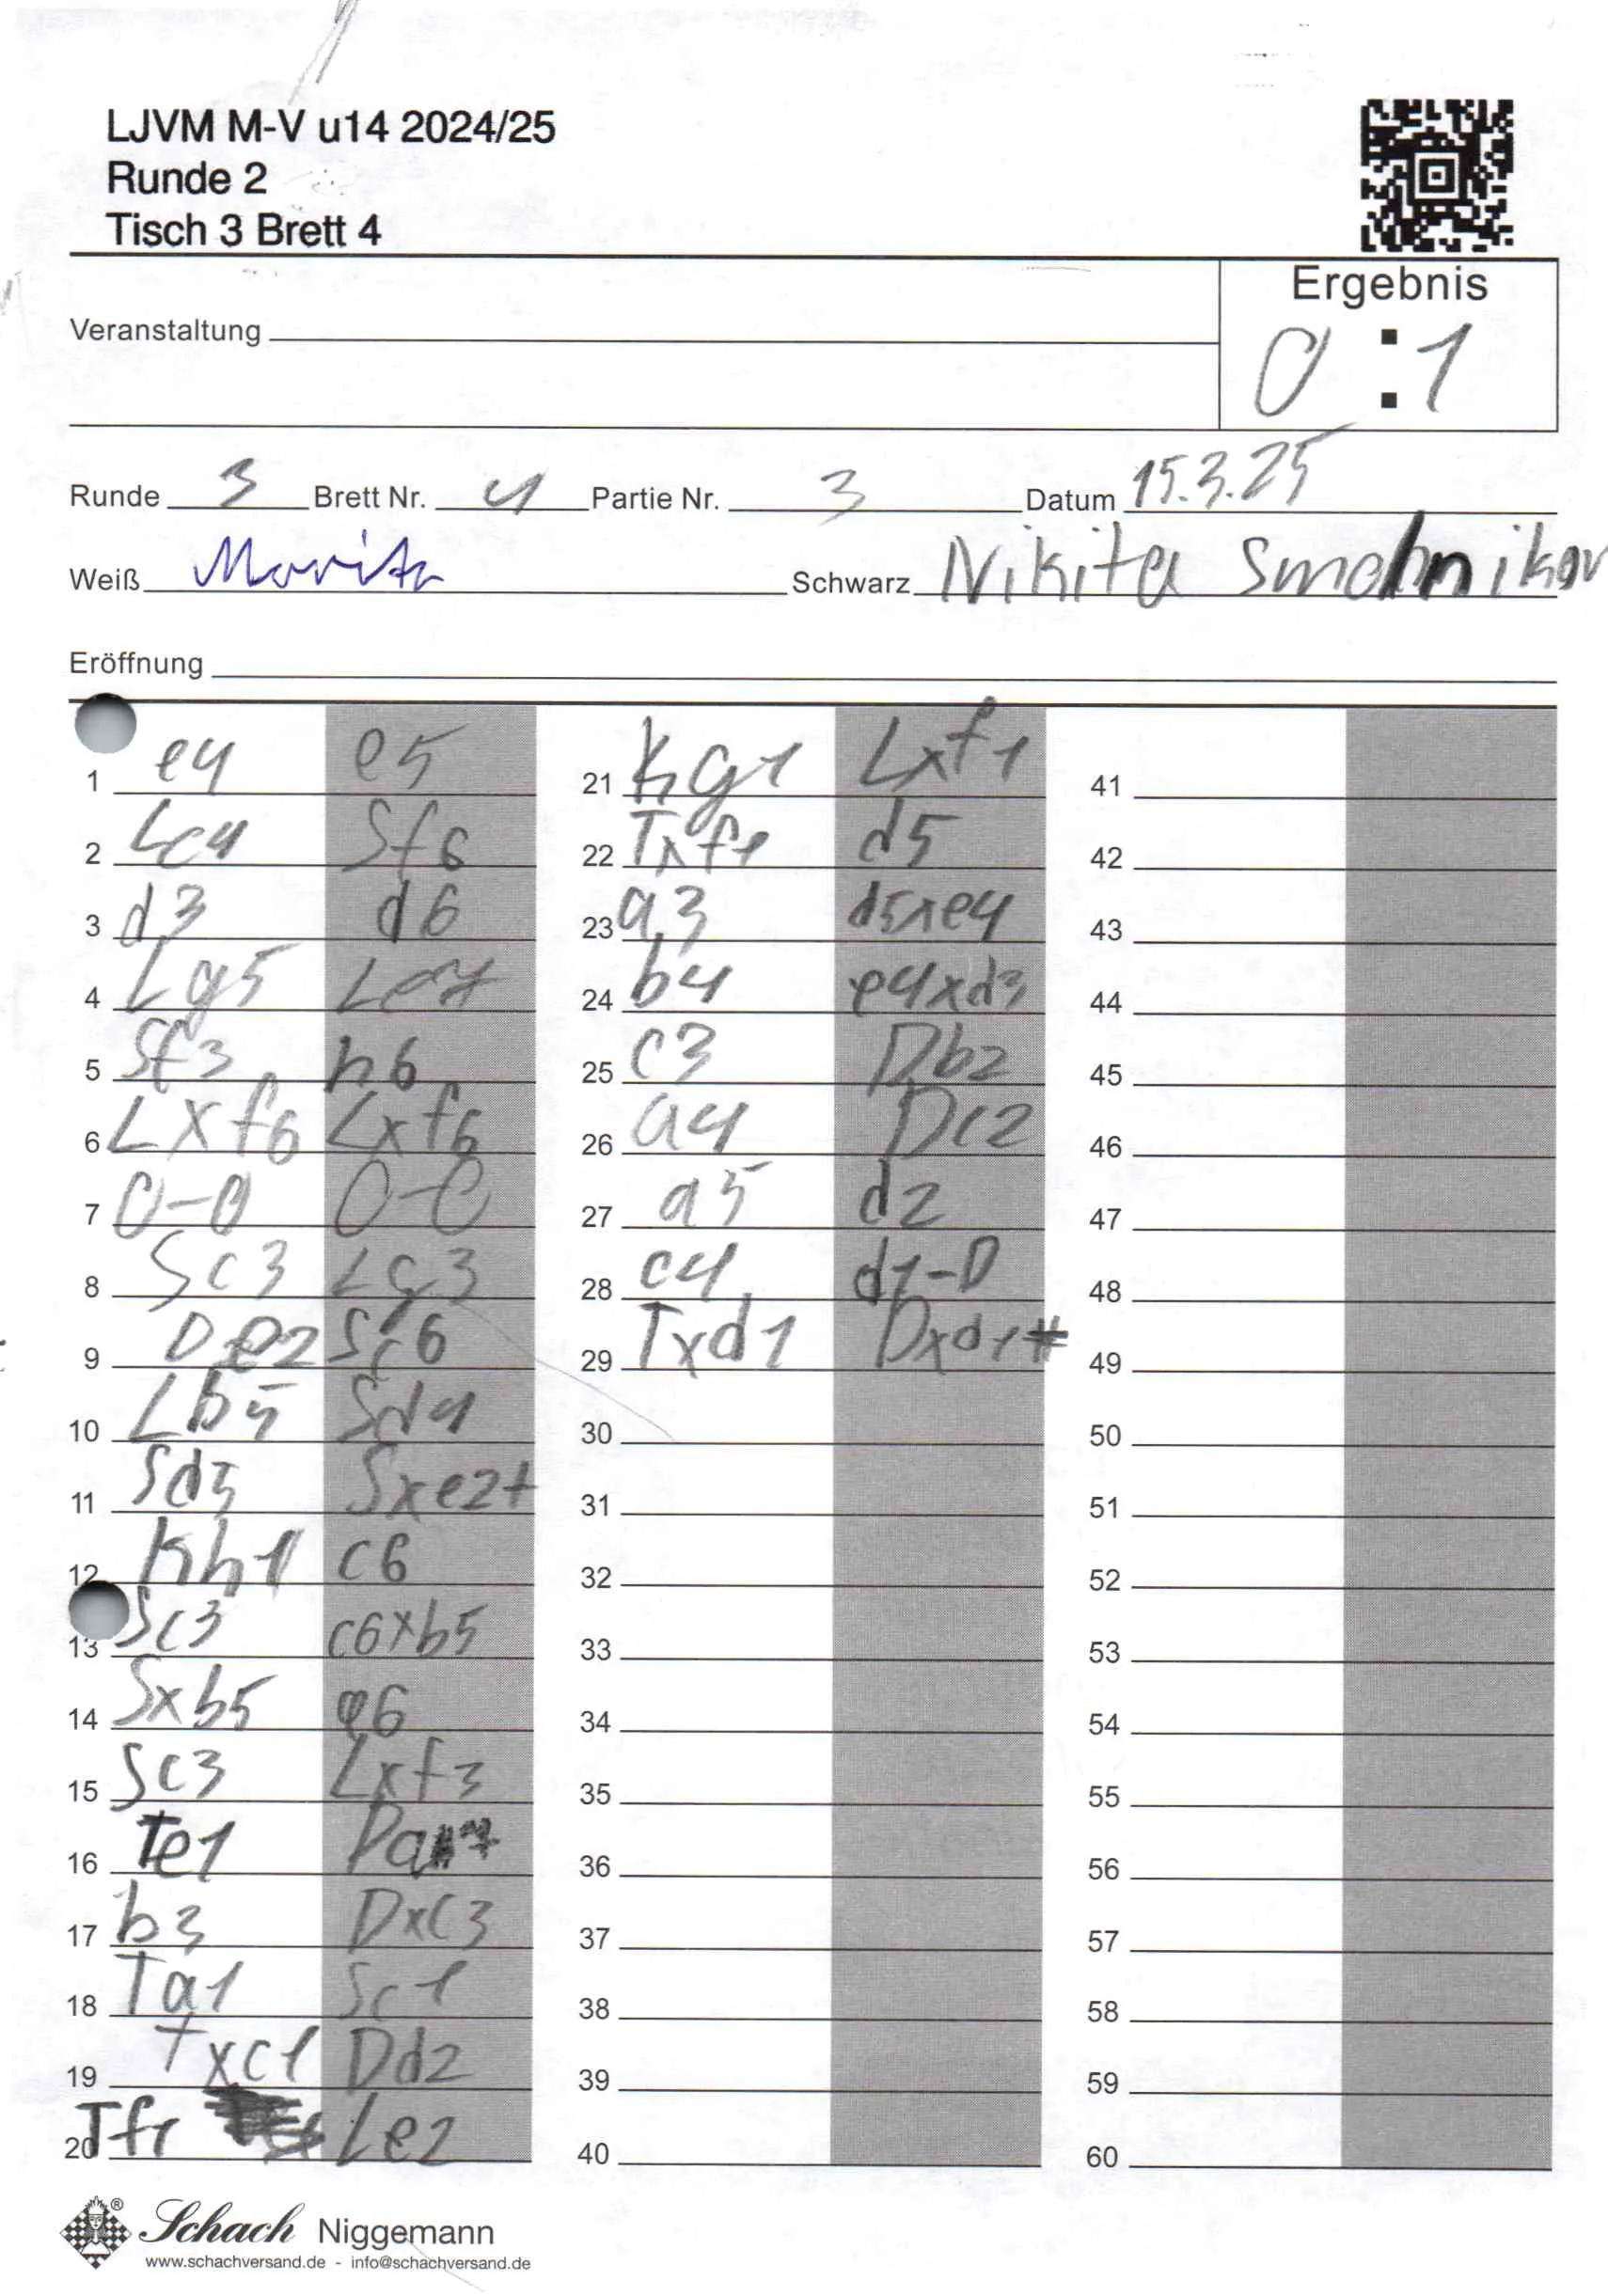 LJVM M-V u14 2024/25
Runde 2
Tisch 3 Brett 4
Ergebnis
0 : 1
Veranstaltung
Runde 3 Brett Nr. 4 Partie Nr. 3 Datum 15.3.25
Weiß Moritz Schwarz Nikita Smolnikov
Eröffnung
1 e4 e5
2 Lc4 Sf6
3 d3 d6
4 Lg5 Le7
5 Sf3 h6
6 Lxf6 Lxf6
7 0-0 0-0
8 Sc3 Lg3
9 De2 Sc6
10 Lb5 Sd4
11 Sd5 Sxe2+
12 Kh1 c6
13 Sc3 c6xb5
14 Sxb5 a6
15 Sc3 Lxf3
16 Te1
17 b3 Dxc3
18 Ta1 Sc1
19 Txc1 Dd2
20 Tf1 Le2
21 Kg1 Lxf1
22 Txf1 d5
23 a3 d5xe4
24 b4 e4xd3
25 c3 Db2
26 a4 Dc2
27 a5 d2
28 c4 d1-D
29 Txd1 Dxd1#
30
31
32
33
34
35
36
37
38
39
40
41
42
43
44
45
46
47
48
49
50
51
52
53
54
55
56
57
58
59
60
® Schach Niggemann
www.schachversand.de - info@schachversand.de